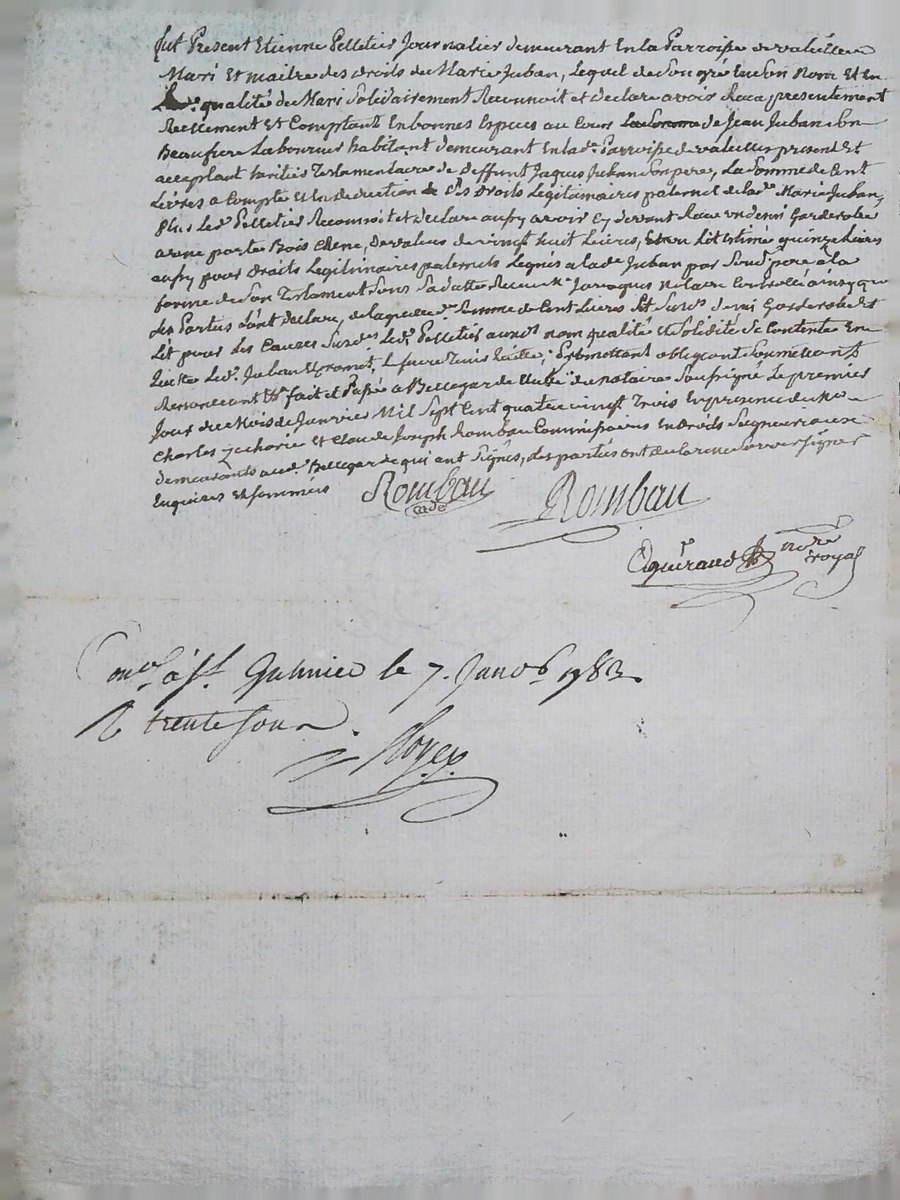 fut Present Etienne Pelletier Journalier demeurant En la Parroisse de valeille
Mari Et maitre des droits de Marie Juban, Lequel de Son gré En Son Nom Et En
qualité de Mari Solidairement Reconnoit et declare avoir Recu presentement
Reellement Et Comptant En bonnes Especes au Cour de Jean Juban Son
Beaufrere Laboureur habitant demeurant En lad.e Parroisse de valeilles present Et
acceptant heritier Testamentaire de deffunt Jaques Juban Son pere, La Somme de Cent
Livres a Compte Et En deduction de Ses Droits Legitimaires paternel de lad.e Marie Juban,
Plus Led.t Pelletier Reconnoit et declare aussy avoir Cy devant Recu un demi Garderobe
a une porte Bois Chene, De valeur de vingt huit Livres, Et un Lit Estimé quinze Livres
aussy pour droits Legitimaires paternels Legués a lad.e Juban par Sond.t pere à la
forme de Son Testament Sous Sa datte Recu M.e notaire Controllé ainsy que
Les Parties L'ont declaré, de laquelle d.e Somme de Cent Livres Et Susd.t demi Garderobe Et
Lit pour Les Causes Susd.es Led.t Pelletier auxd.s nom qualité Et Solidité Se Contente En
quitte Led.t Juban Et promet Le faire Tenir quitte; Promettant obligeant Soumettant
Renonceant &.a fait et Passé a Bellegarde Etude du notaire Soussigné Le premier
Jour du Mois de Janvier Mil Sept Cent quatre vingt Trois En presence de M.e
Charles Zacharie et Claude Joseph Rombau Commissaires En droits Seigneuriaux
demeurants aud.t Bellegarde qui ont Signés, Les parties ont declaré ne Scavoir Signer
Enquises Et Sommées
Rombau
Rombau
Aguiraud no.re royal
Con.lé à St. Galmier le 7. Janv. 1783.
R trente sous
Royer